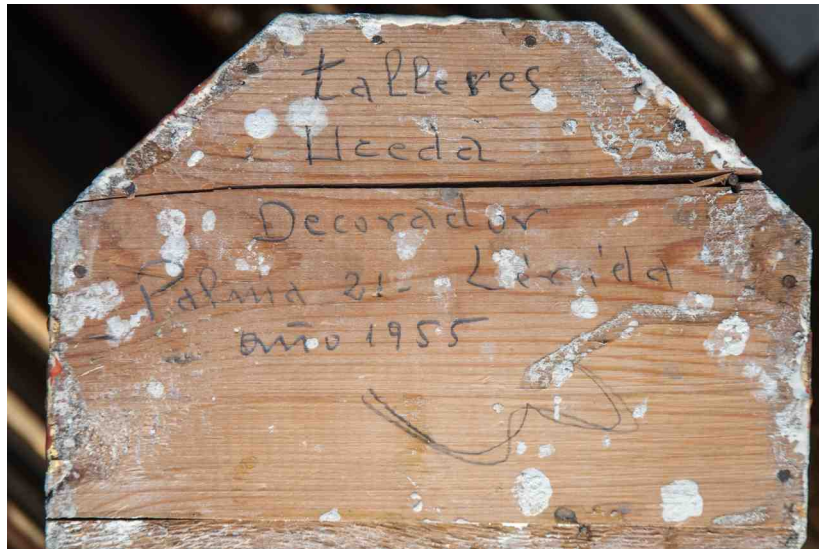 talleres
Uceda
Decorador
Palma 21- Lérida
año 1955